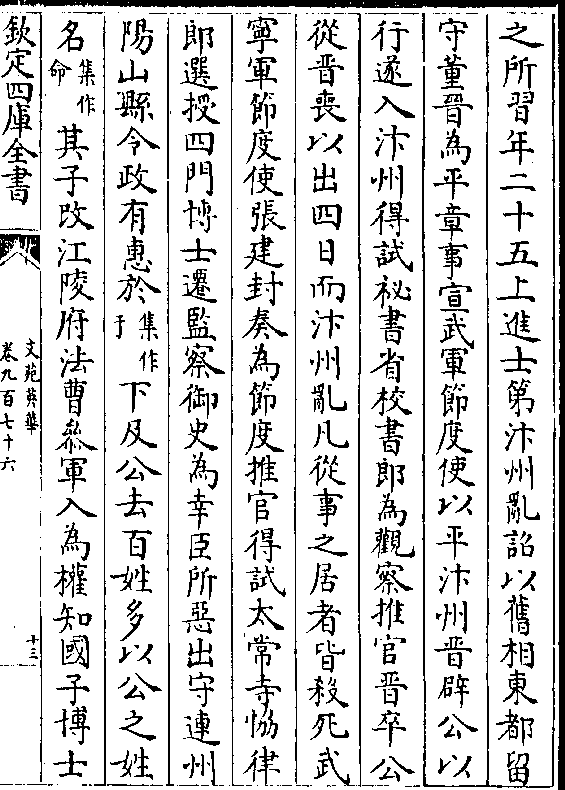 之所習年二十五上進士第汴州亂詔以舊相東都留
守董晉為平章事宣武軍節度使以平汴州晉辟公以
行遂入汴州得試祕書省校書郎為觀察推官晉卒公
從晉喪以出四日而汴州亂凡從事之居者皆殺死武
寧軍節度使張建封奏為節度推官得試太常寺恊律
郎選授四門博士遷監察御史為幸臣所惡出守連州
陽山縣令政有惠於集作于下及公去百姓多以公之姓
名集作命其子改江陵府法曹叅軍入為權知國子博士
欽定四庫全書
文苑英華
卷九百七十六
十三